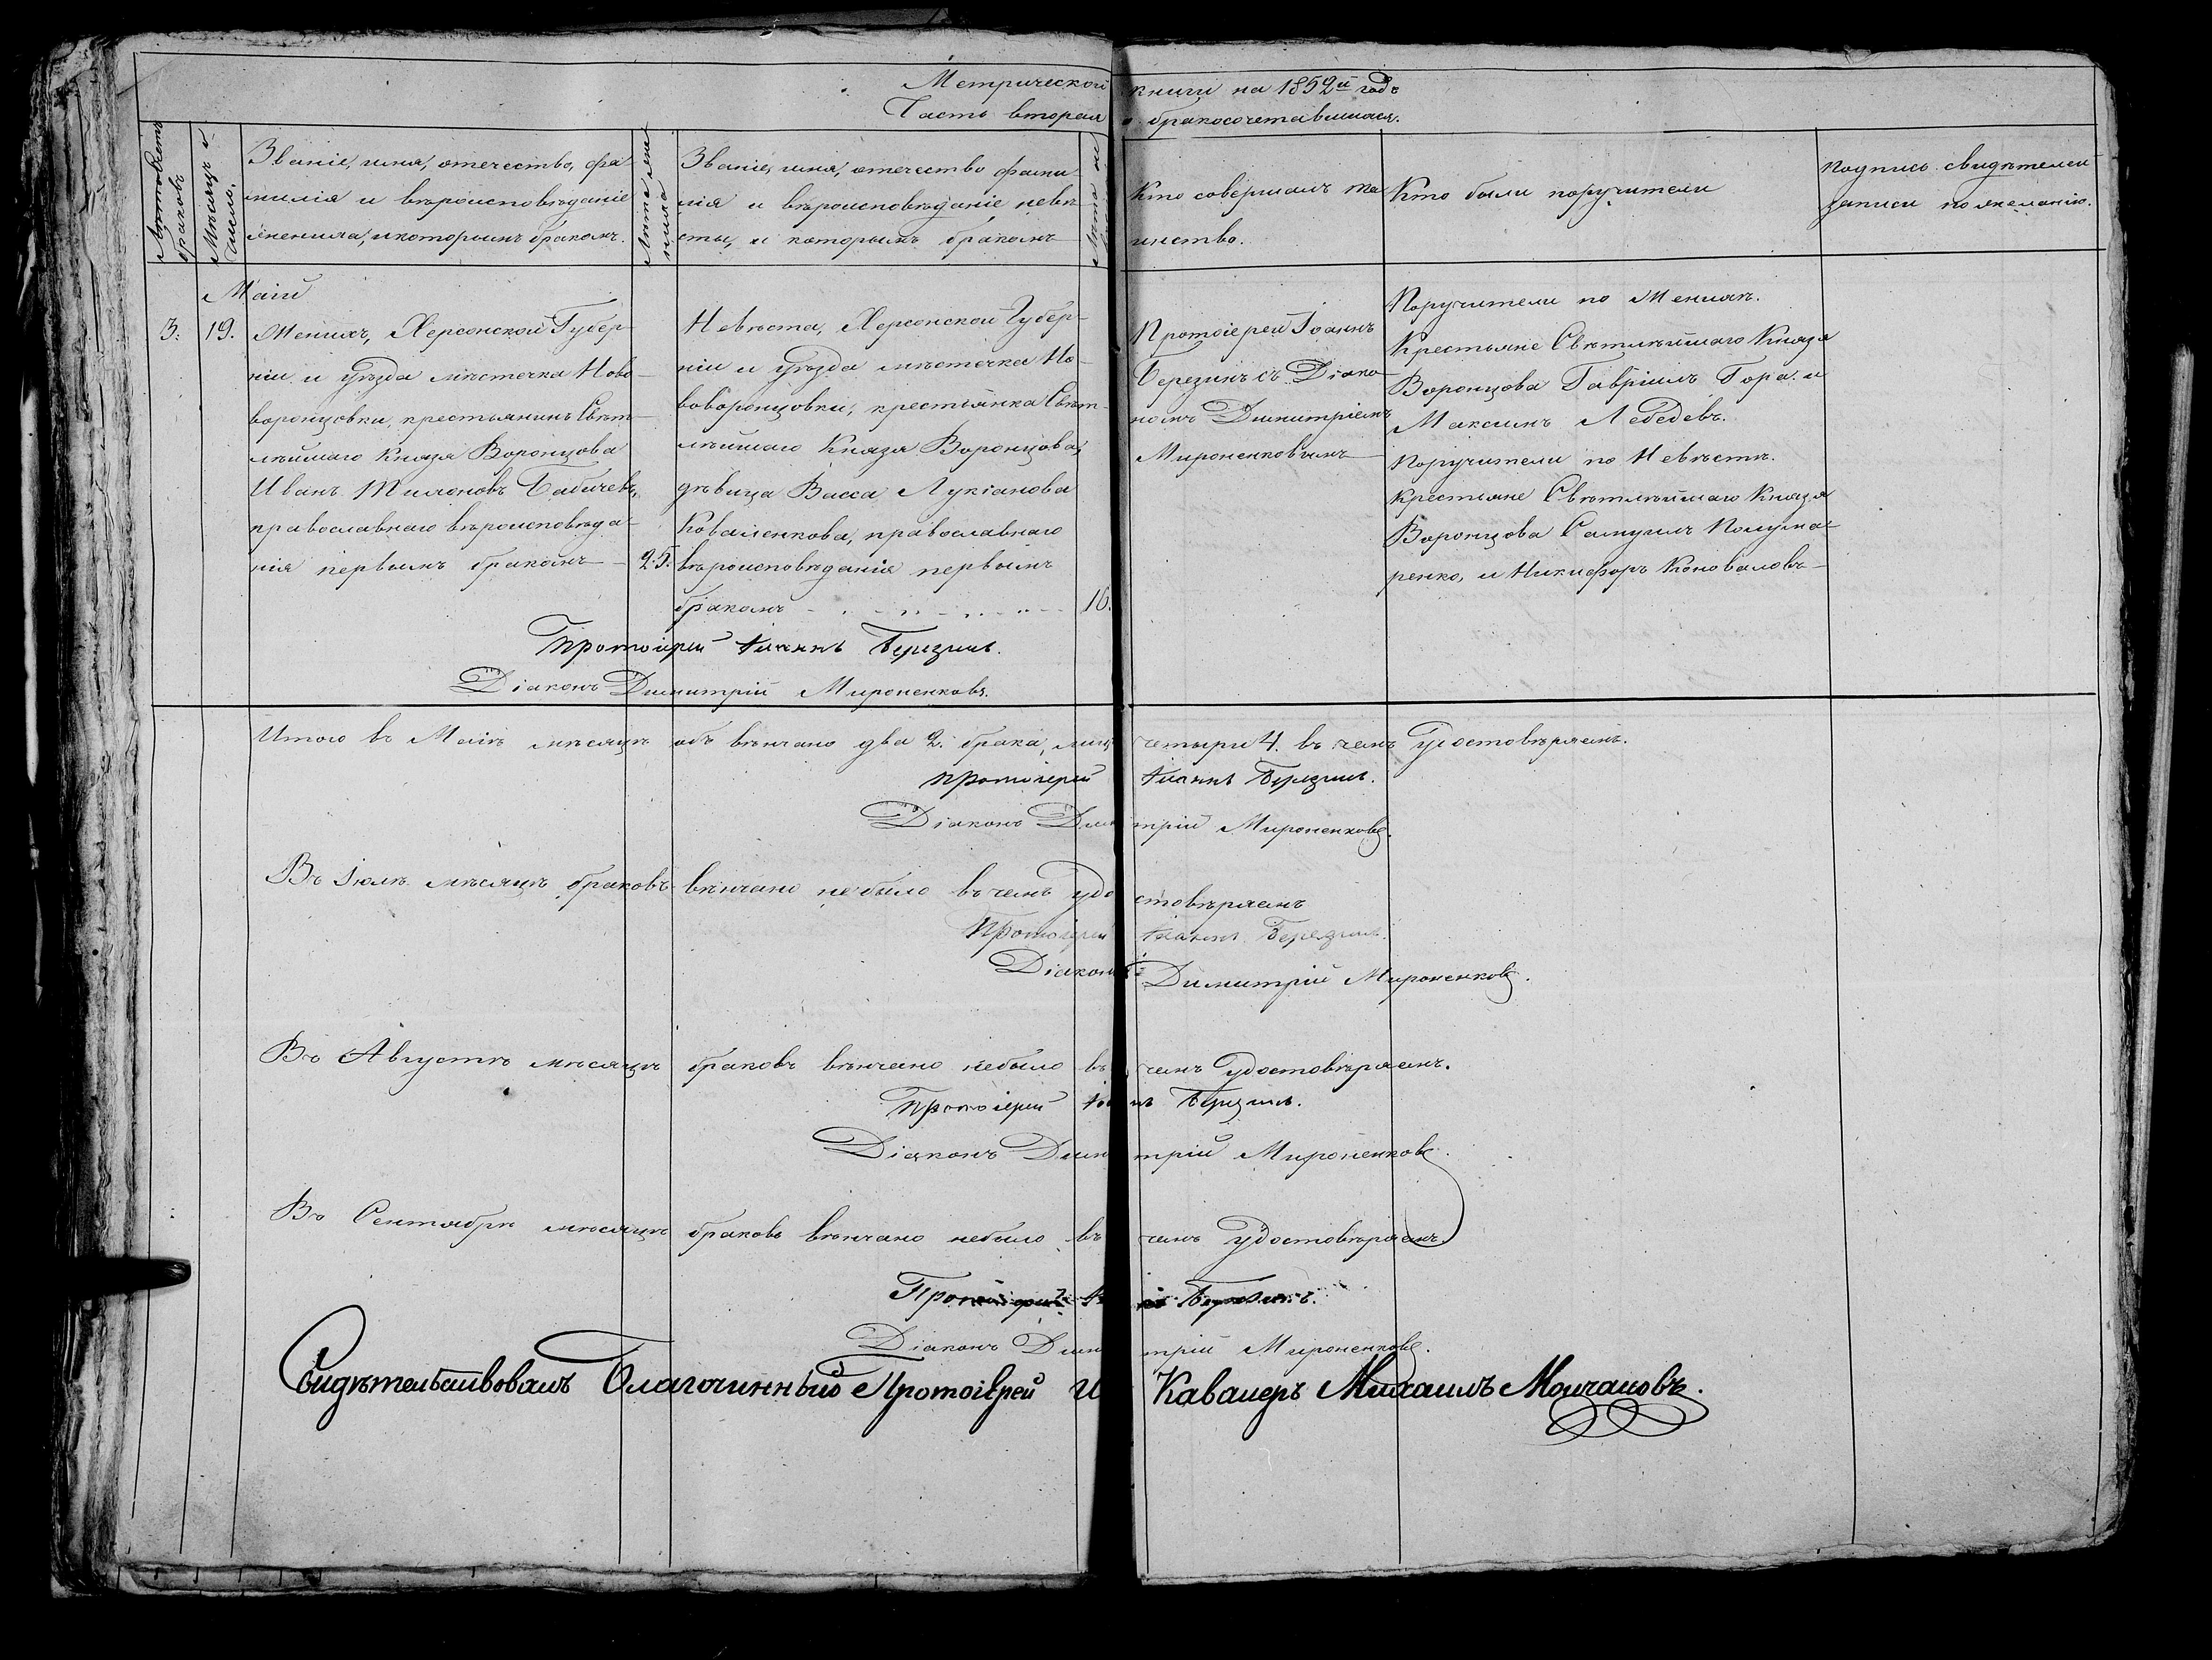 Метрической книги на 1852й годъ
Часть вторая о бракосочетавшихся.
Счетъ браковъ
Мѣсяцъ и число.
Званіе, имя, отечество, фа-
милія и вѣроисповѣданіе
жениха, и которымъ бракомъ.
Лѣта жениха
Званіе, имя, отечество фами-
лія и вѣроисповѣданіе невѣ-
сты, и которымъ бракомъ
Кто совершалъ та-
инство.
Кто были поручители
Подпись свидѣтелей
записи по желанію.
Маій
3. 19.
Женихъ, Херсонской Губер-
ніи и Уѣзда мѣстечка Ново-
воронцовки, крестьянинъ Свѣт-
лѣйшаго Князя Воронцова
Иванъ Тимоновъ Бабичевъ,
православнаго вѣроисповѣда-
нія первымъ бракомъ
25.
Невѣста, Херсонской Губер-
ніи и Уѣзда мѣстечка Но-
вово­ронцовки, крестьянка Свѣт-
лѣйшаго Князя Воронцова,
дѣвица Васса Лукіанова
Коваленкова, православнаго
вѣроисповѣданія первымъ
бракомъ
16.
Протоіерей Іоаннъ
Березинъ съ Діако-
номъ Димитріемъ
Мироненковымъ
Поручители по Женихѣ.
Крестьяне Свѣтлѣйшаго Князя
Воронцова Гавріилъ Гора и
Максимъ Лебедевъ.
Поручители по Невѣстѣ.
Крестьяне Свѣтлѣйшаго Князя
Воронцова Самуилъ Полума-
ренко, и Никифоръ Коноваловъ
Протоіерей Іоаннъ Березинъ.
Діаконъ Димитрій Мироненковъ.
Итого въ Маіѣ мѣсяцѣ обвѣнчано два 2. брака, лицъ четыри 4. въ чемъ удостовѣряемъ.
Протоіерей Іоаннъ Березинъ.
Діаконъ Димитрій Мироненковъ.
Въ Іюлѣ мѣсяцѣ браковъ вѣнчано небыло въ чемъ удостовѣряемъ
Протоіерей Іоаннъ Березинъ.
Діаконъ Димитрій Мироненковъ.
Въ Августѣ мѣсяцѣ браковъ вѣнчано небыло въ чемъ удостовѣряемъ.
Протоіерей Іоаннъ Березинъ.
Діаконъ Димитрій Мироненковъ.
Въ Сентябрѣ мѣсяцѣ браковъ вѣнчано небыло въ чемъ удостовѣряемъ.
Протоіерей Іоаннъ Березинъ.
Діаконъ Димитрій Мироненковъ.
Свидѣтельствовалъ Благочинный Протоіерей и Кавалеръ Михаилъ Молчановъ.